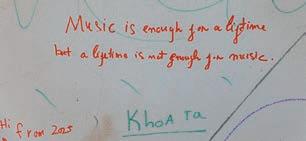 Music is enough for a lifetime
but a lifetime is not enough for music.
KhoA Ta
Hi
from 2025